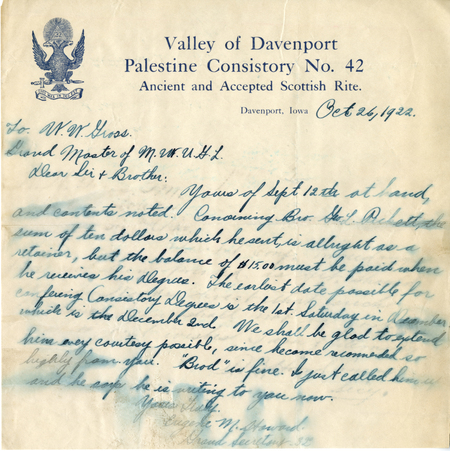 Valley of Davenport
Palestine Consistory No. 42
Ancient and Accepted Scottish Rite.
Davenport, Iowa Oct 26, 1922.
To: W. W. Gross.
Grand Master of M. W. U. G. L.
Dear Sir & Brother:
Yours of Sept 12th at hand,
and contents noted. Concirning Bro. the
sum of ten dollars which he sent, is allright as a
retainer, but the balance of $15.00 must be paid when
he receives his Degrees. The earliest date possible for
confering Consistory Degrees is the 1st. Saturday in December
which is the December 2nd. We shall be glad to extend
him every courtesy possible, since he come recomended so
highly from you. "Brod" is fine. I just called him up
and he says he is writing to you now.
Yours Truly,
Eugene M. Howard.
Grand